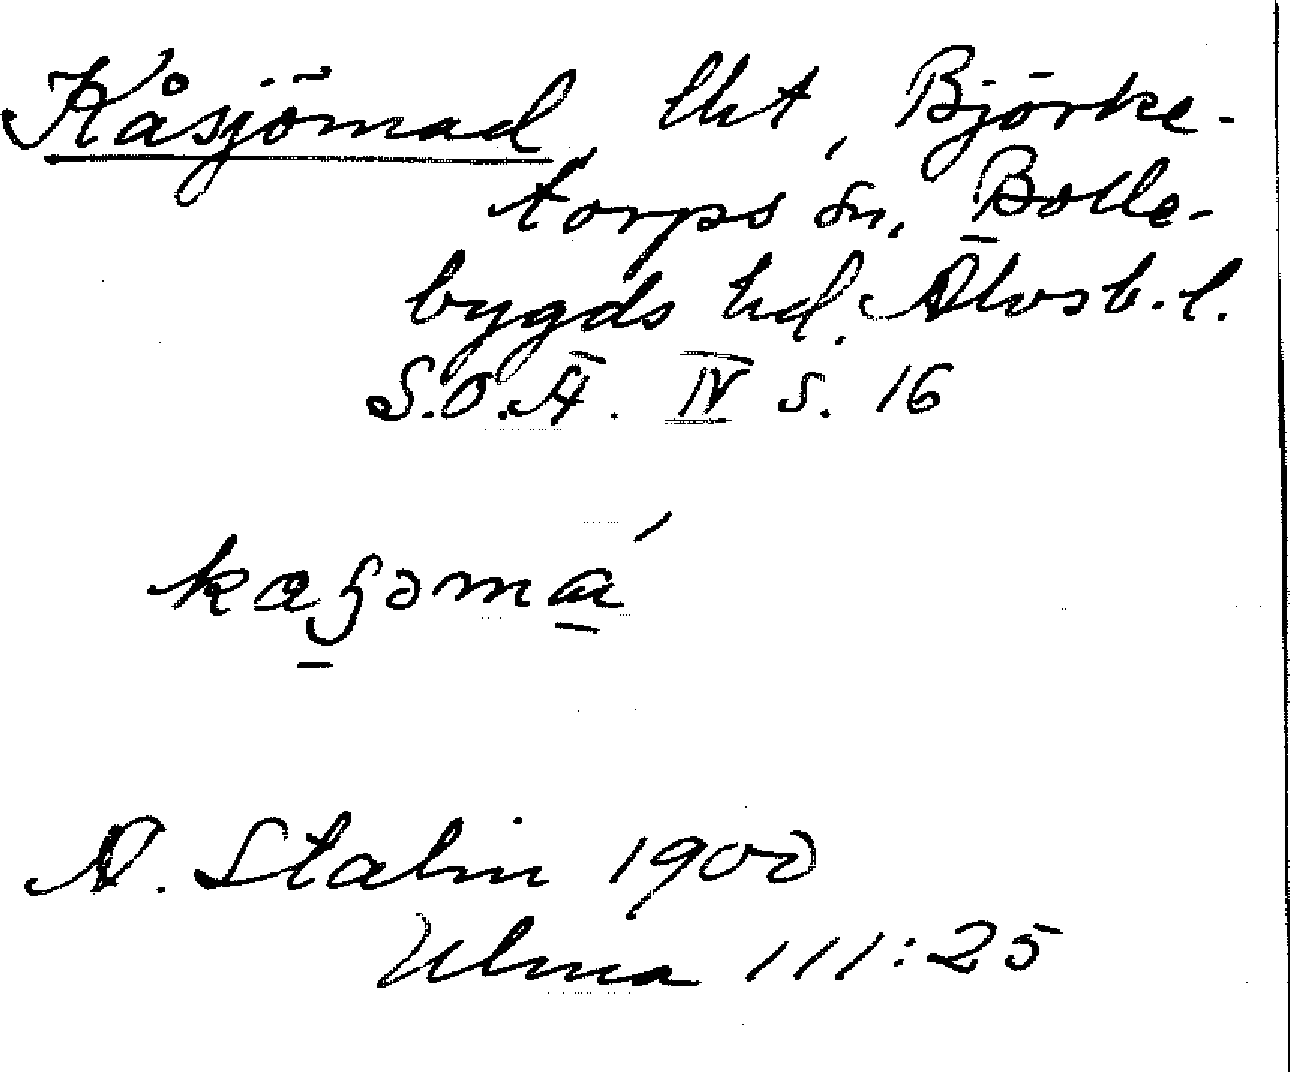 Kåsjömad lht, Björke-
torps sn, Bolle-
bygds hd. Älvsb. l.
S.O.Ä. IV s. 16
A. Stalin 1900
Ulma 111:25